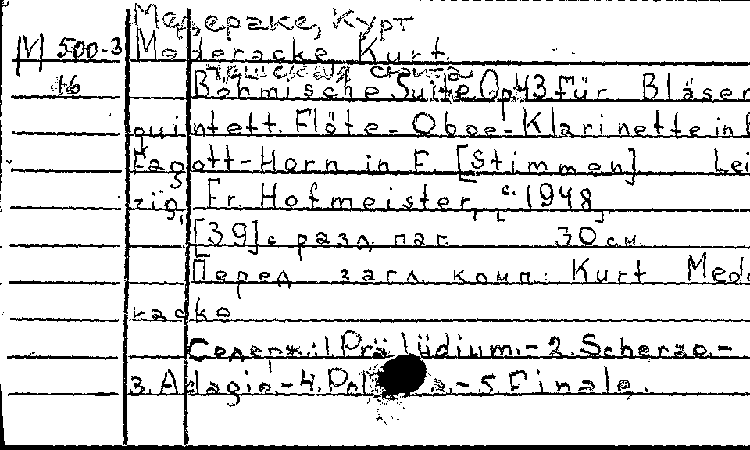 Медераке, Курт
М 500-3 Mederacke, Kurt
16 Böhmische Suite Op. 43 für Bläser
quintett. Flöte- Oboe- Klarinette in
Fagott-Horn in F. [Stimmen] Lei
zig, Fr. Hofmeister, c. 1948
[39] с разд. паг. 30 см.
Перед загл. комп.: Kurt Mede
racke
Содерж.: 1. Prälüdium.- 2. Scherzo.-
3. Adagio.- 4. - 5. Finale.